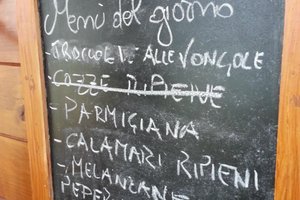 Menù del giorno
- TROCCOLI ALLE VONGOLE
- COZZE RIPIENE
- PARMIGIANA
- CALAMARI RIPIENI
- MELANZANE
PEPER